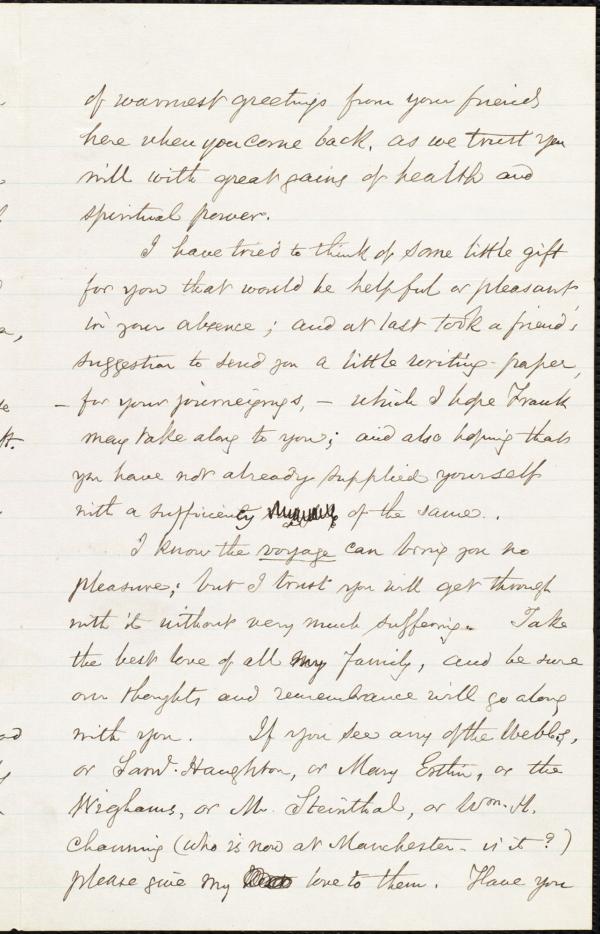 of warmest greetings from your friends
here when you come back, as we trust you
will with great gains of health and
spiritual power.
I have tried to think of some little gift
for you that would be helpful or pleasant
in your absence; and at last took a friend's
suggestion to send you a little writing-paper,
– for your journeyings, – which I hope Frank
may take along to you; and also hoping that
you have not already supplied yourself
with a sufficiency of the same.
I know the voyage can bring you no
pleasure; but I trust you will get through
with it without very much suffering. Take
the best love of all my family, and be sure
our thoughts and remembrance will go along
with you. If you see any of the Webbs,
or Saml. Haughton, or Mary Estlin, or the
Wighams, or Mr. Steinthal, or Wm. H.
Channing (who is now at Manchester – is it?)
please give my love to them. Have you